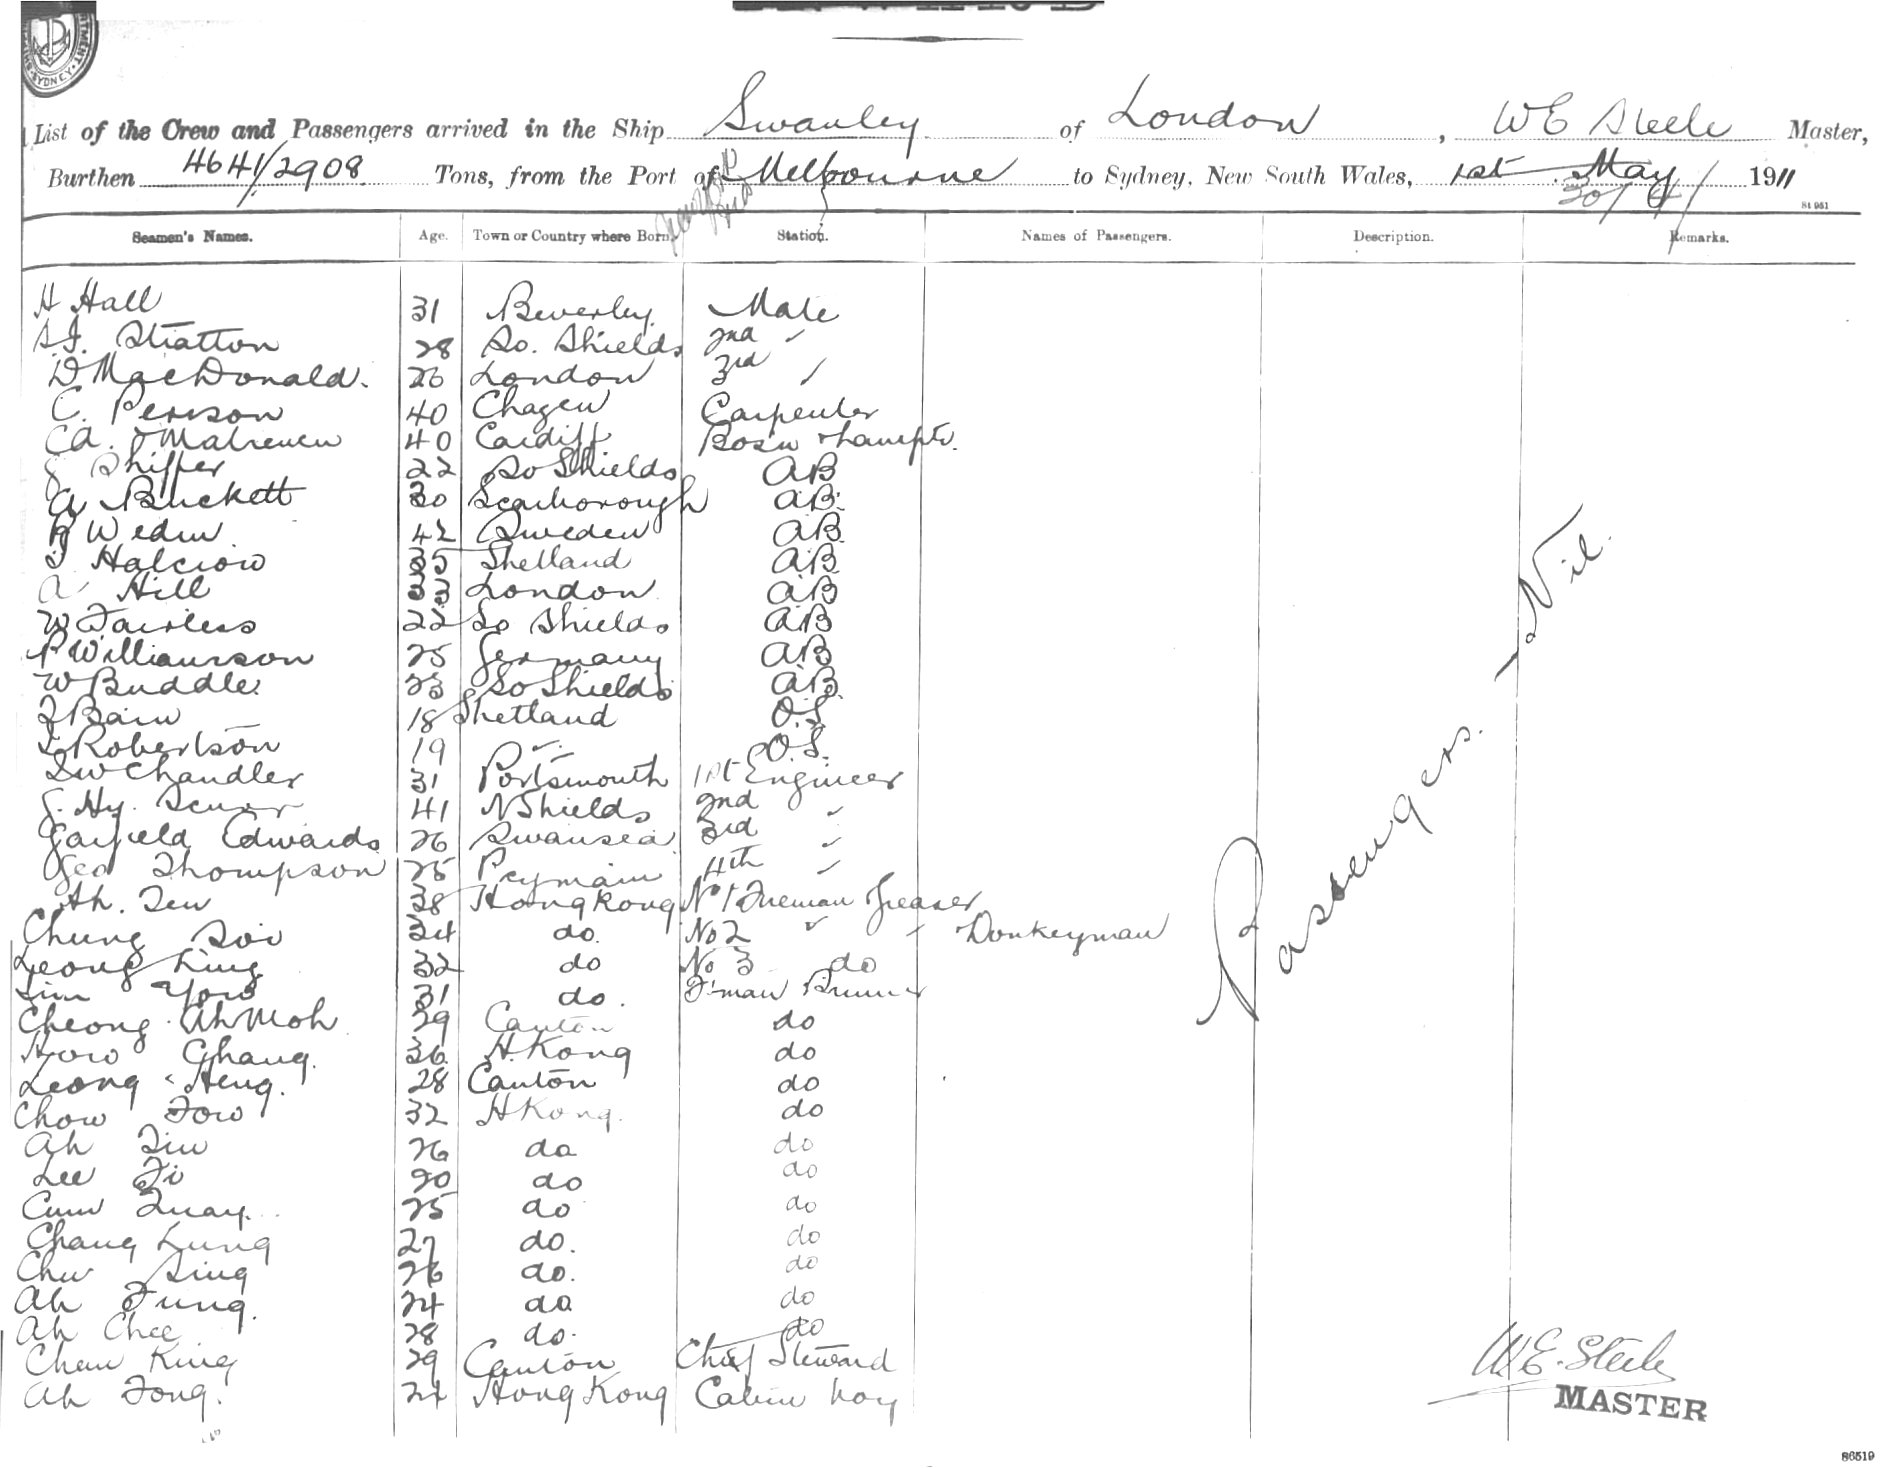 SYDNEY
List of the Crew and Passengers arrived in the Ship Swanley of London, W E Steele Master,
Burthen 4641/2908 Tons, from the Port of Melbourne to Sydney, New South Wales, 1st May 1911
30/4/
84 951
Seamen's Names. Age. Town or Country where Born. Station. Names of Passengers. Description. Remarks.
H Hall 31 Beverley Mate
Stratton 28 So. Shields 2nd "
D MacDonald. 26 London 3rd "
C. 40 Carpenter
40 Cardiff Bosn
22 So Shields AB
A Buckett 30 Scarborough AB.
Wedin 42 Sweden AB.
Halcrow 35 Shetland AB
A Hill 33 London AB
W Fairless 22 So Shields AB
P Williamson 25 Germany AB
W Buddle 23 So Shields AB.
Bain 18 Shetland O.S.
Robertson 19 " O.S.
Chandler 31 Portsmouth 1st Engineer
41 N Shields 2nd "
Garfield Edwards 26 Swansea 3rd "
Geo Thompson 25 4th "
Ah. 38 Hong Kong No 1 Fireman Greaser
Chung Soi 34 do. No 2 " " Donkeyman
Leong Ling 32 do No 3 do
Yow 31 do.
Cheong Ah Moh 29 Canton do
How Chang. 36 H. Kong do
Leong Heng. 28 Canton do
Chow Fow 32 H Kong. do
Ah 26 do do
Lee 20 do do
25 do do
Chang Lung 27 do. do
Sing 26 do. do
Ah Fung. 24 do do
Ah Chee 28 do. do
Chan King 29 Canton Chief Steward
Ah Fong. 24 Hong Kong Cabin boy
Passengers. Nil.
W.E. Steele
MASTER
86519